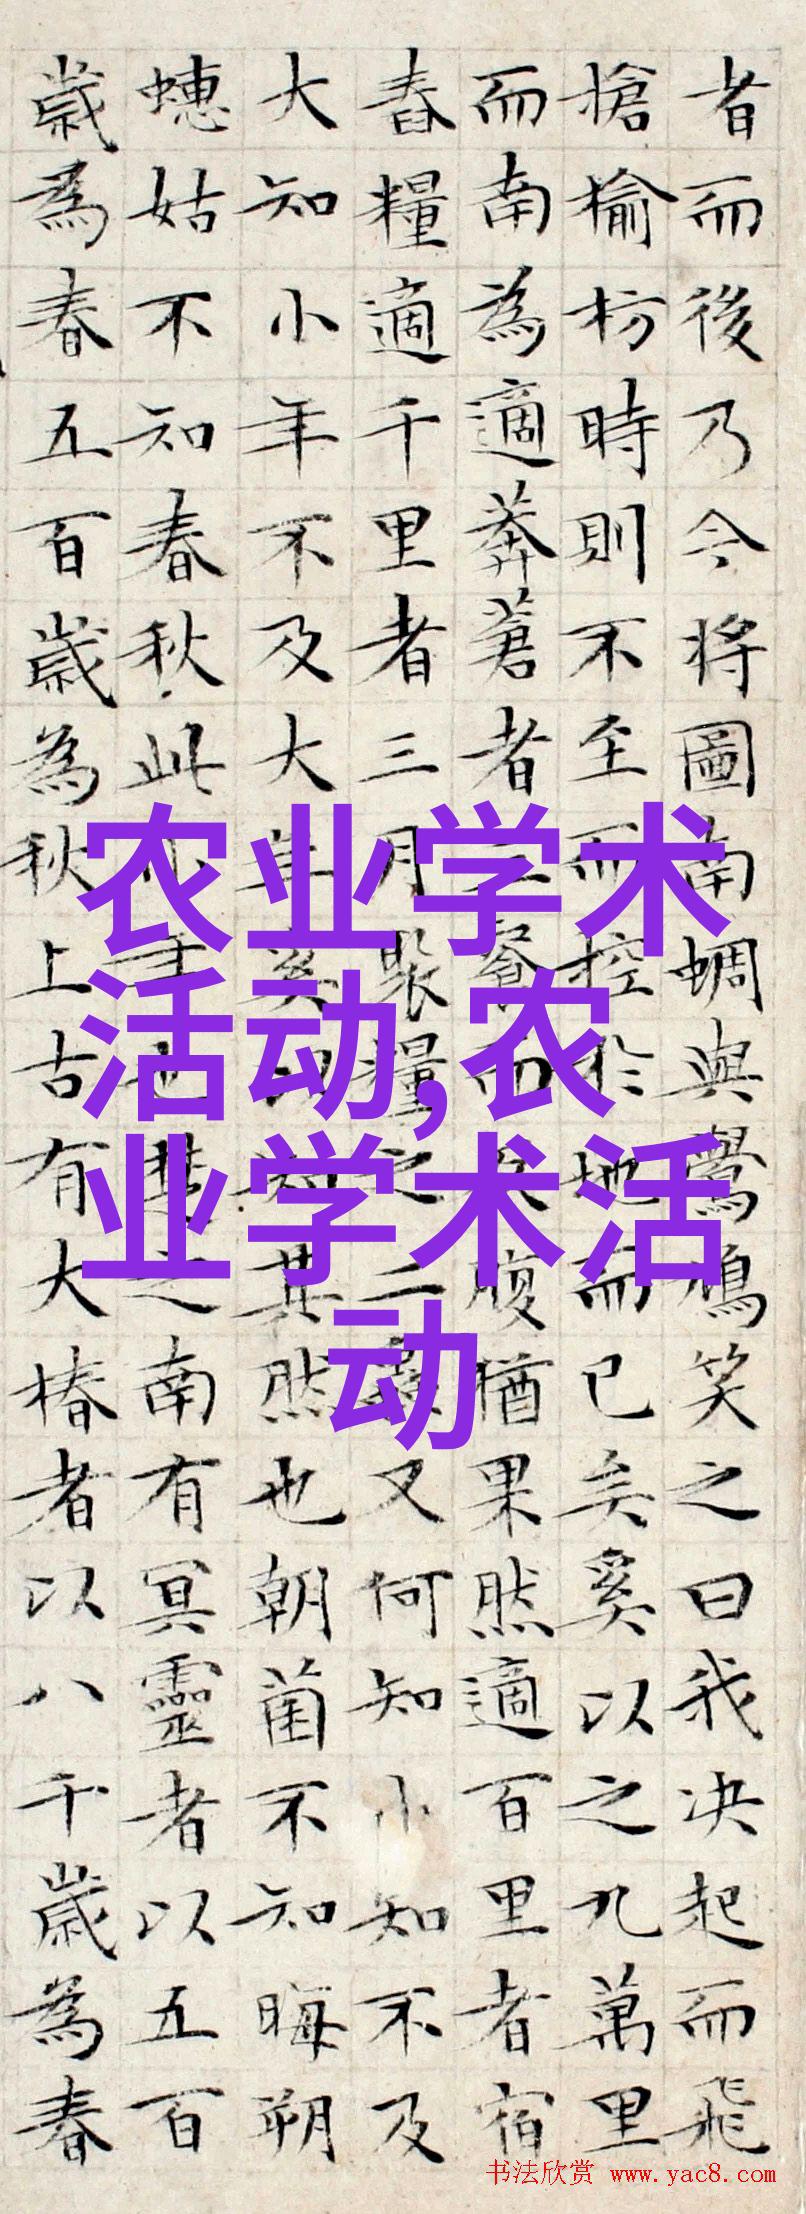 者而後乃今将圖南蜩與鷽鳩笑之曰我决起而飛
槍榆枋時則不至而控於地而已矣奚以之九萬里
而南為適莽蒼者三餐而反腹猶果然適百里者宿
舂糧適千里者三月聚糧之二蟲又何知小知不及
大知小年不及大年奚以知其然也朝菌不知晦朔
蟪蛄不知春秋此小年也楚之南有冥靈者以五百
歲為春五百歲為秋上古有大椿者以八千歲為春
农业学术
活动,农
业学术活
动
书法欣赏 www.yac8.com